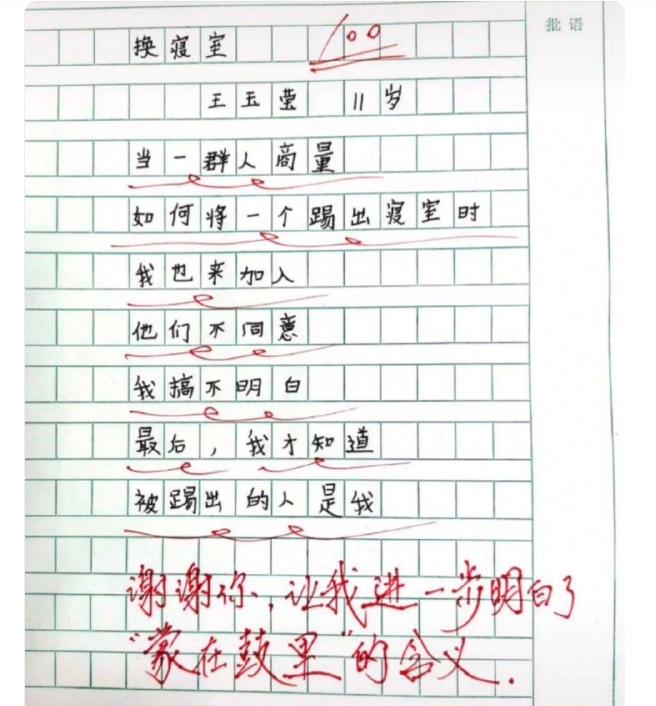 批语
换寝室 100
王玉莹 11岁
当一群人商量
如何将一个踢出寝室时
我也来加入
他们不同意
我搞不明白
最后，我才知道
被踢出的人是我
谢谢你，让我进一步明白了
“蒙在鼓里”的含义.